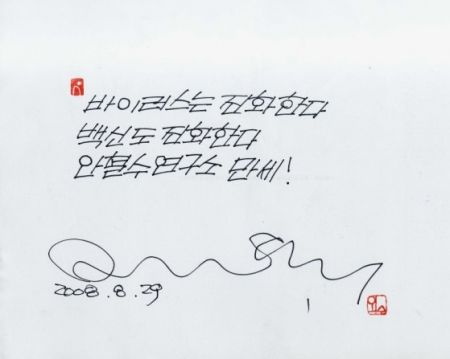 바이러스는 진화한다
백신도 진화한다
안철수연구소 만세!
2008.8.29